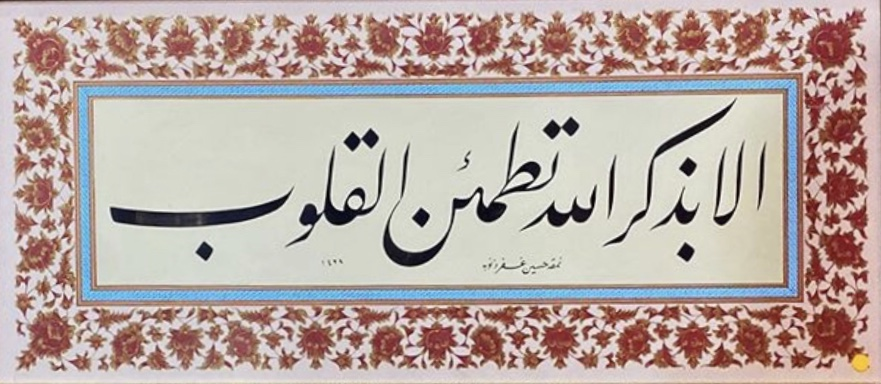 الا بذكر الله تطمئن القلوب
نمقه حسين غفر ذنوبه ١٤٢٩